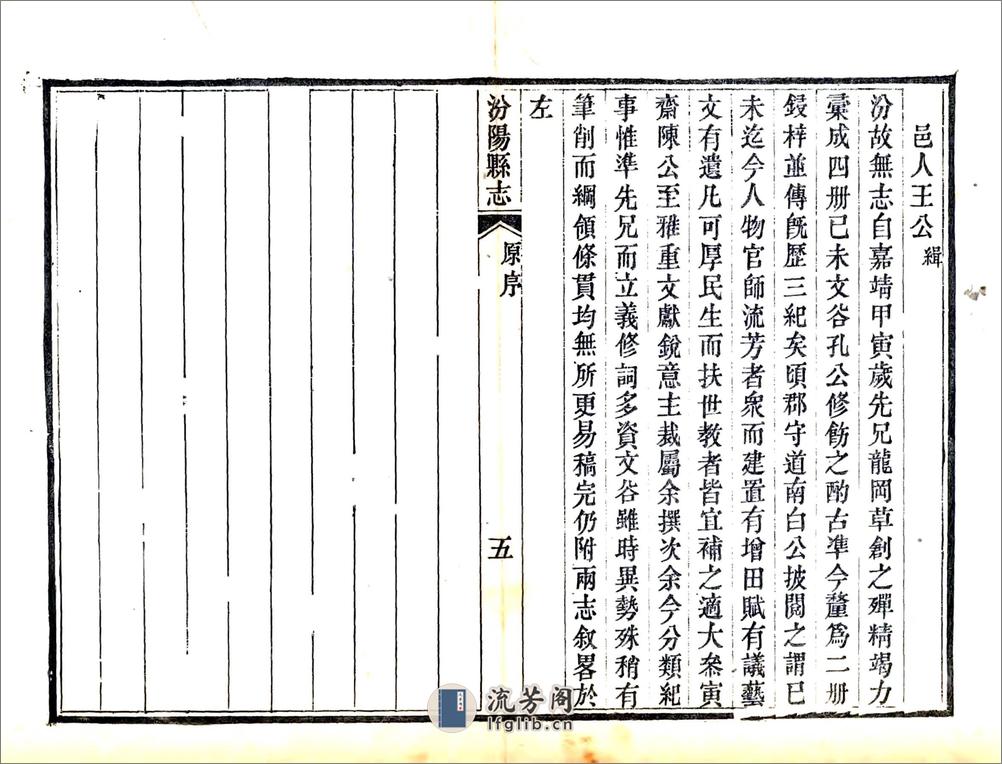 邑人王公緝
汾故無志自嘉靖甲寅歲先兄龍岡草創之殫精竭力
彙成四册已未文谷孔公修飭之酌古準今釐爲二册
鋟梓並傳旣歷三紀矣頃郡守道南白公披閱之謂已
未迄今人物官師流芳者衆而建置有增田賦有議藝
文有遺凡可厚民生而扶世敎者皆宜補之適大叅寅
齋陳公至雅重文獻銳意主裁屬余撰次余今分類紀
事惟準先兄而立義修詞多資文谷雖時異勢殊稍有
筆削而綱領條貫均無所更易稿完仍附兩志叙畧於
左
汾陽縣志
原序
五
流芳阁
lfglib.cn